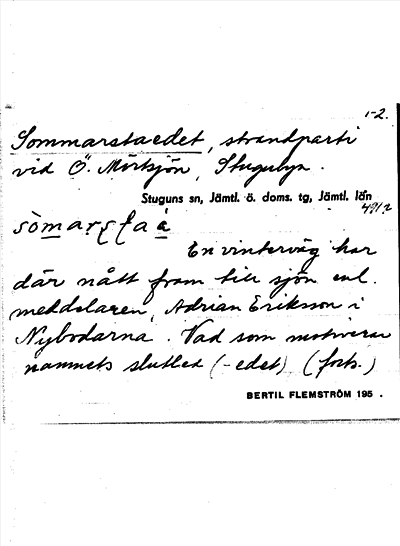 1-2.
Sommarstaedet, strandparti
vid Ö. Mörtsjön, Stugubyn.
Stuguns sn, Jämtl. ö. doms. tg, Jämtl. län
En vinterväg har
där nått fram till sjön enl.
meddelaren, Adrian Eriksson i
Nybodarna. Vad som motiverar
namnets slutled (-edet) (forts.)
BERTIL FLEMSTRÖM 195 .